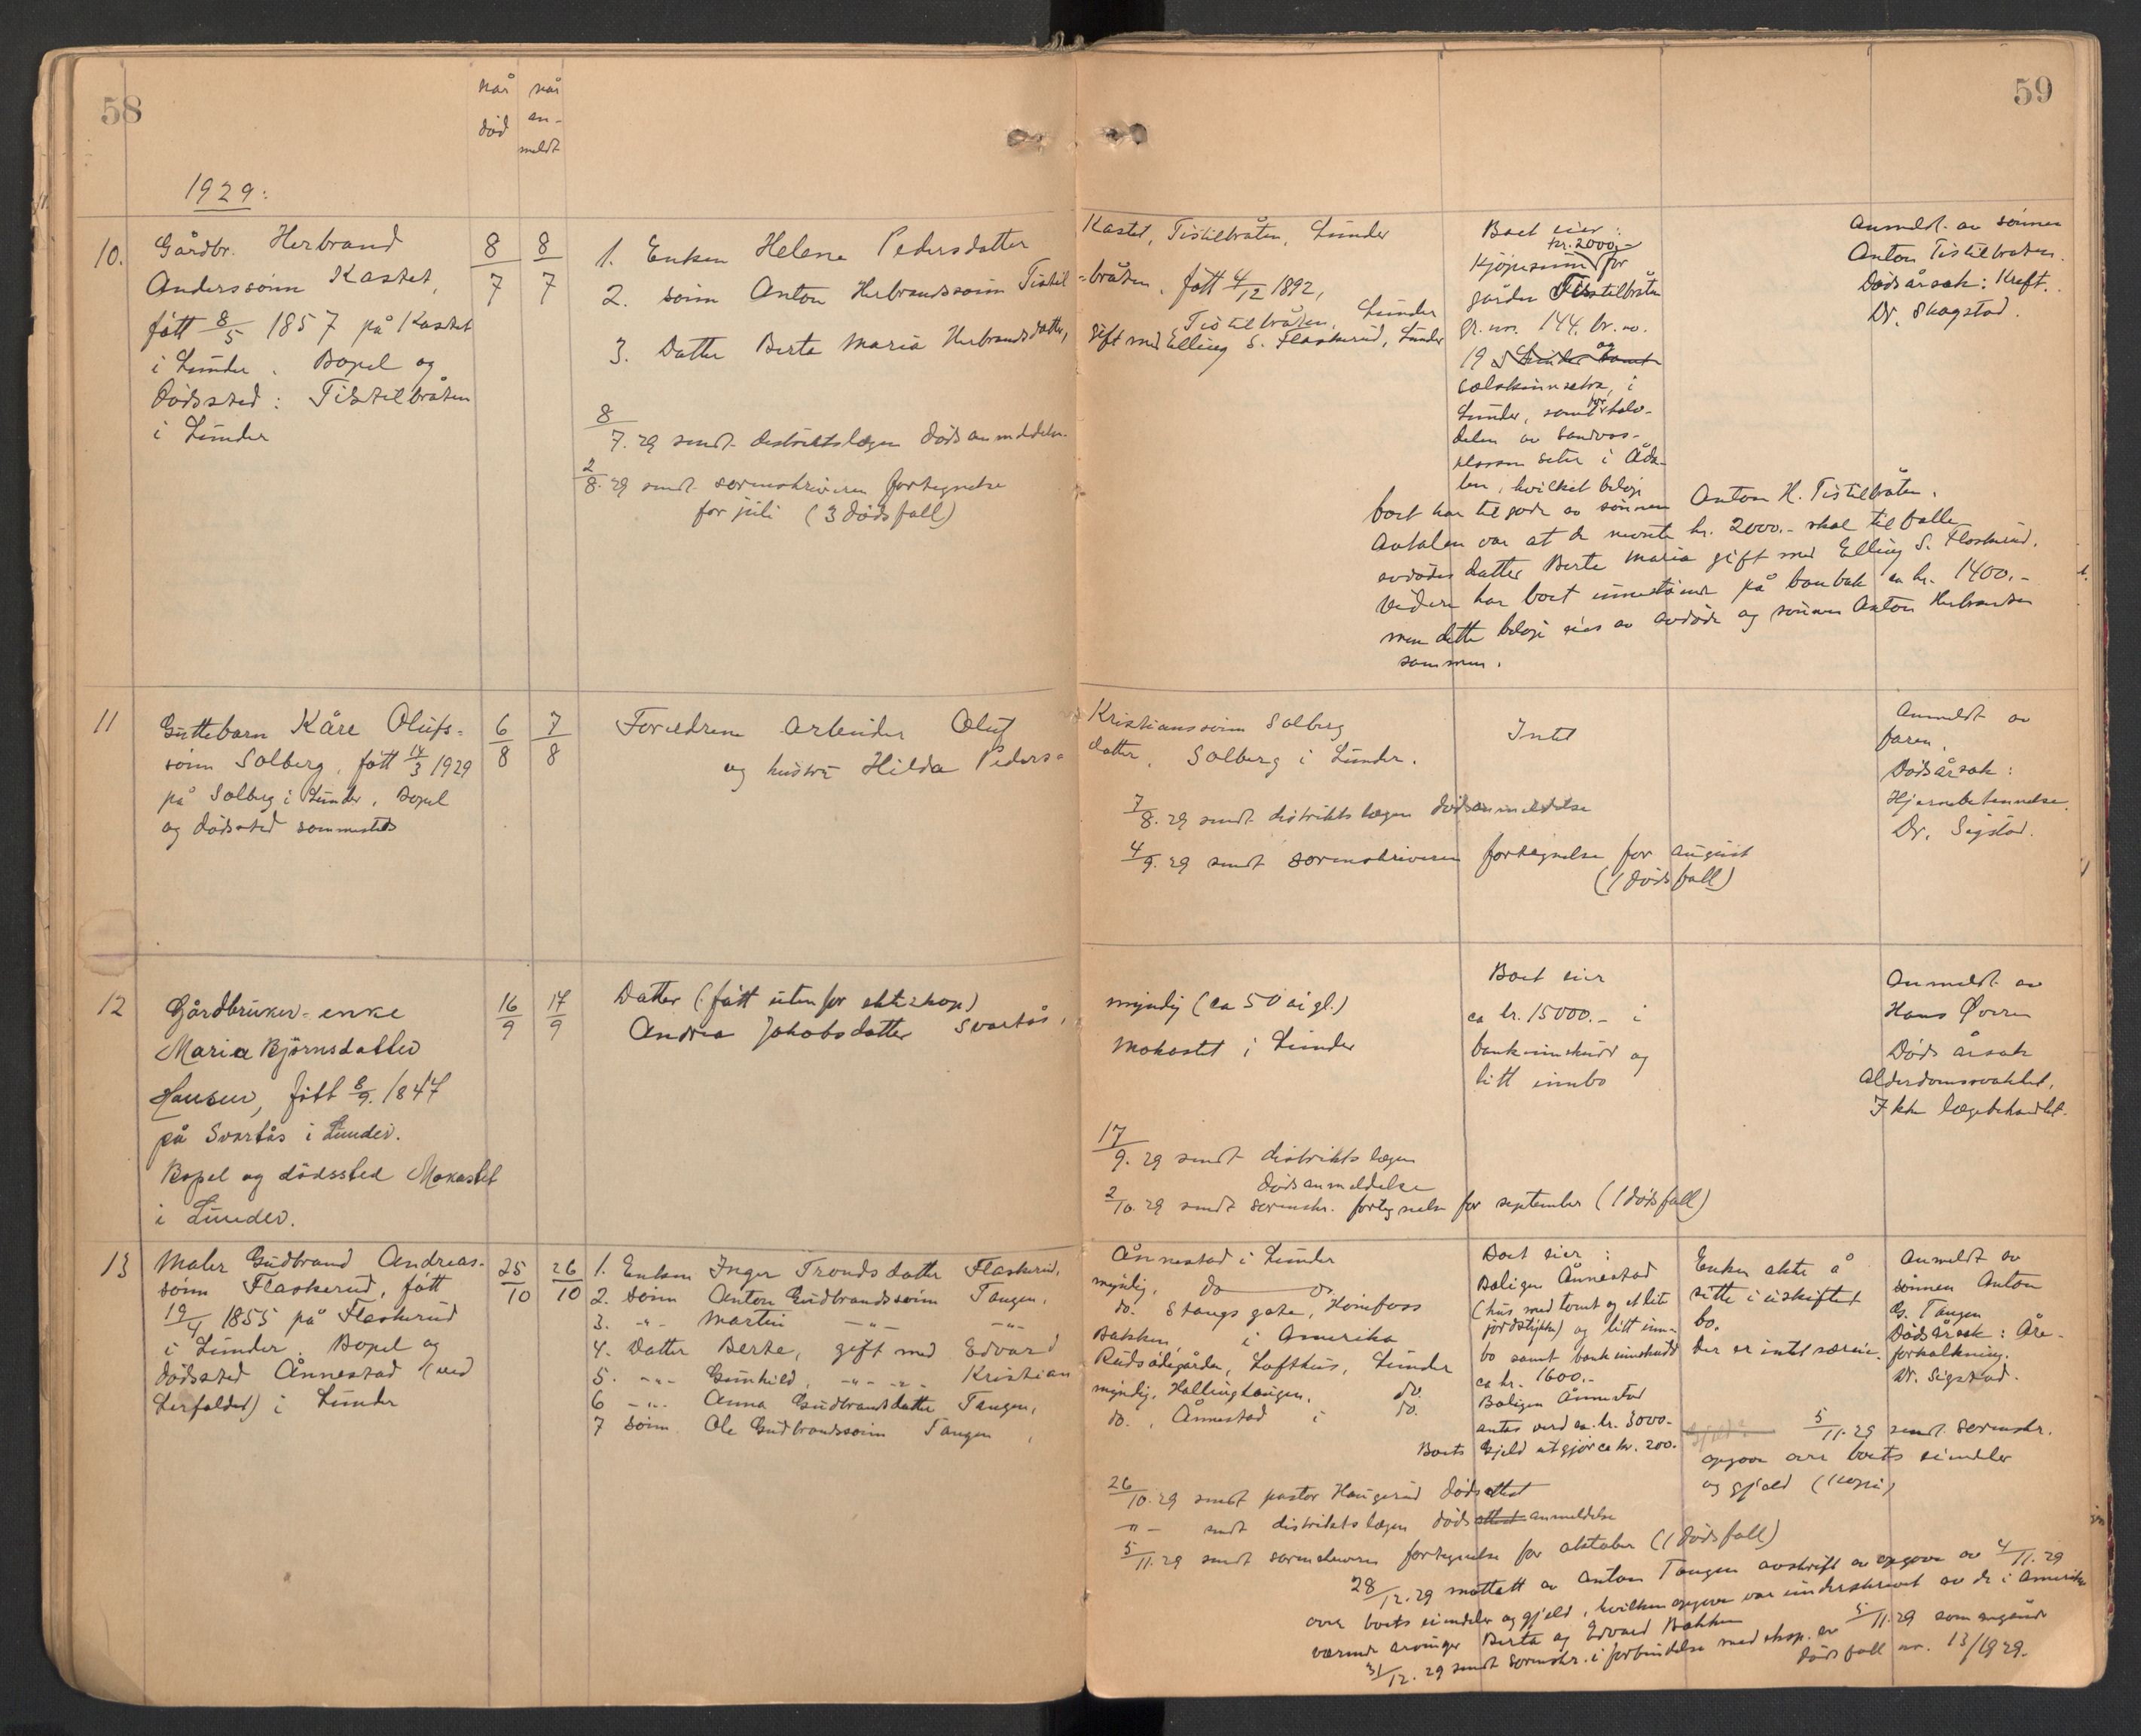 58
59
når død
når an-meldt
1929:
10.
Gårdbr. Herbrand
Anderssønn Kastet,
fått 8/5 1857 på Kastet
i Lunder. Bopel og
Dødssted: Tistilbråten
i Lunder
8/7
8/7
1. Enken Helene Pedersdatter Kastet, Tistilbråten, Lunder
2. sønn Anton Herbrandssønn Tistil-bråten, fått 4/12 1892,
Tistilbråten, Lunder
3. Datter Berta Maria Herbrandsdatter, gift med Elling S. Flaskerud, Lunder
8/7. 29 sendt distriktslægen dødsanmeldelse.
2/8. 29 sendt sorenskriveren fortegnelse
for juli (3 dødsfall)
Boet eier:
kr. 2000.-
Kjøpesum for
gården Tistilbråten
gr. nr. 144. br. no.
19 i Lunder samt og
Solskinnsetra, i
Lunder, samt for halv-
delen av Sandvas-
plassen seter i Åda-
len, hvilket beløp
boet har tilgode av sønnen Anton H. Tistilbråten.
Avtalen var at de nevnte kr. 2000.- skal tilfalle
avdødes datter Berte Maria gift med Elling S. Flaskerud.
Videre har boet innestående på bankbok ca kr. 1400.-
men dette beløp eies av avdøde og sønnen Anton Herbrandsen
sammen.
Anmeldt av sønnen
Anton Tistilbråten.
Dødsårsak: Kreft.
Dr. Skagstad.
11
Guttebarn Kåre Olufs-
sønn Solberg, fått 14/3 1929
på Solberg i Lunder, Bopel
og dødssted sammesteds
6/8
7/8
Foreldrene Arbeider Oluf Kristianssønn Solberg
og hustru Hilda Peders-datter, Solberg i Lunder.
7/8. 29 sendt distriktslægen dødsanmeldelse
4/9. 29 sendt sorenskriveren fortegnelse for august
(1 dødsfall)
Intet
Anmeldt av
faren.
Dødsårsak:
Hjernebetennelse.
Dr. Sigstad.
12
Gårdbruker-enke
Maria Bjørnsdatter
Hansen, fått 8/9. 1847
på Svartås i Lunder.
Bopel og dødssted Mokastet
i Lunder.
16/9
17/9
Datter (fått utenfor ekteskap) myndig (ca 50 år gl.)
Andrea Jakobsdatter Svartås, Mokastet i Lunder
17/9. 29 sendt distriktslægen
dødsanmeldelse
2/10. 29 sendt sorenskr. fortegnelse for september (1 dødsfall)
Boet eier
ca kr. 15000.- i
bankinnskudd og
litt innbo
Anmeldt av
Hans Øvren
Dødsårsak
Alderdomssvakhet.
Ikke lægebehandlet.
13
Maler Gudbrand Andreas-
sønn Flaskerud, fått
19/4 1855 på Flaskerud
i Lunder. Bopel og
dødssted Ånnestad (ved
Lerfaldet) i Lunder
25/10
26/10
1. Enken Inger Trondsdatter Flaskerud, Ånnestad i Lunder
2. Sønn Anton Gudbrandssønn Tangen, myndig, do do
3. -"- Martin -"- -"- do. Stangs gate, Hønefoss
4. Datter Berte, gift med Edvard Bakken, i Amerika
5. -"- Gunhild, -"- -"- Kristian Rudsødegården, Lofthus, Lunder
6 -"- Anna Gudbrandsdatter Tangen, myndig, Hallinghaugen, do.
7 Sønn Ole Gudbrandssønn Tangen, do., Ånnestad i do.
Boet eier:
Boligen Ånnestad
(hus med tomt og et lite
jordstykke) og litt inn-
bo samt bankinnskudd
ca kr. 1600.-
Boligen Ånnestad
antas verd ca. kr. 3000.-
Boets Gjeld utgjør ca kr. 200.-
Enken akter å
sitte i uskiftet
bo.
Der er intet særeie.
Anmeldt av
sønnen Anton
G. Tangen
Dødsårsak: Åre-
forkalkning.
Dr. Sigstad.
5/11. 29 sendt sorenskr.
opgave over boets eiendeler
og gjeld (kopi)
26/10. 29 sendt pastor Haugerud dødsattest
-"- sendt distriktslægen dødsattest anmeldelse
5/11. 29 sendt sorenskriveren fortegnelse for oktober (1 dødsfall)
28/12. 29 mottatt av Anton Tangen avskrift av opgave av 4/11. 29
over boets eiendeler og gjeld, hvilken opgave var underskrevet av de i Amerika
værende arvinger Berta og Edvard Bakken
31/12. 29 sendt sorenskr. i forbindelse med eksp. av 5/11. 29 som angående
dødsfall nr. 13/1929.